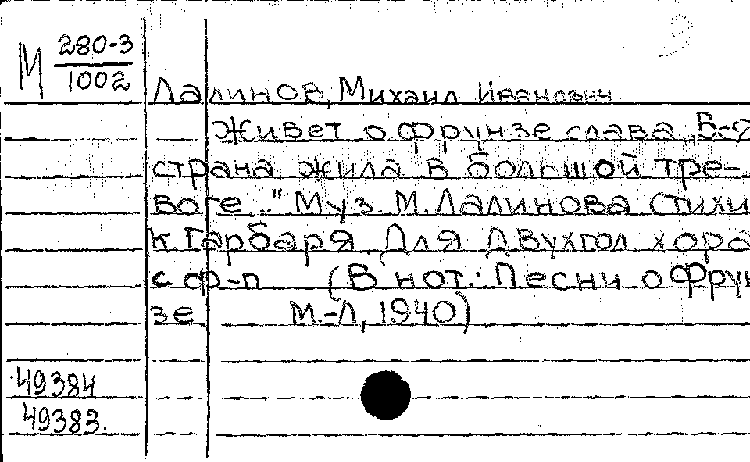 М 280-3
1002
Лалинов, Михаил Иванович
Живет о Фрунзе слава „В-я
страна жила в большой тре-
воге.." Муз М. Лалинова Стихи
К Гарбаря. Для двухгол хора
с ф-п (В нот.: Песни о Фрун
зе М.-Л, 1940)
49384
49383.